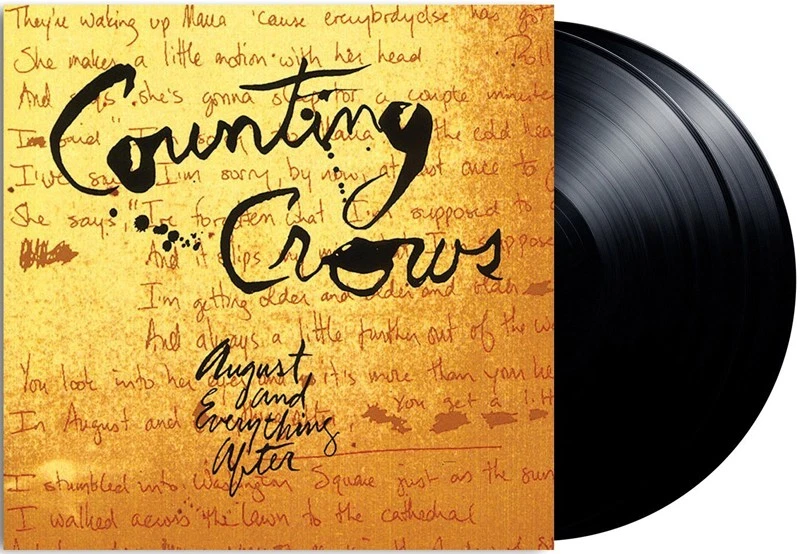 They're waking up Maria 'cause everybody else has got
She makes a little motion with her head Roll
And says she's gonna sleep for a couple minute
Counting
I'm sorry Maria the cold hea
I've I'm sorry by now, at once to g
She says "I've forgotten what I'm supposed to
Crows
And it slips my I'm suppose
I'm getting older and older and older
And always a little further out of the wa
August
You look into her eyes and it's more than you he
and
Everything
In August and you get a litt
After
I stumbled into Washington Square just as the sun
I walked across the lawn to the cathedral